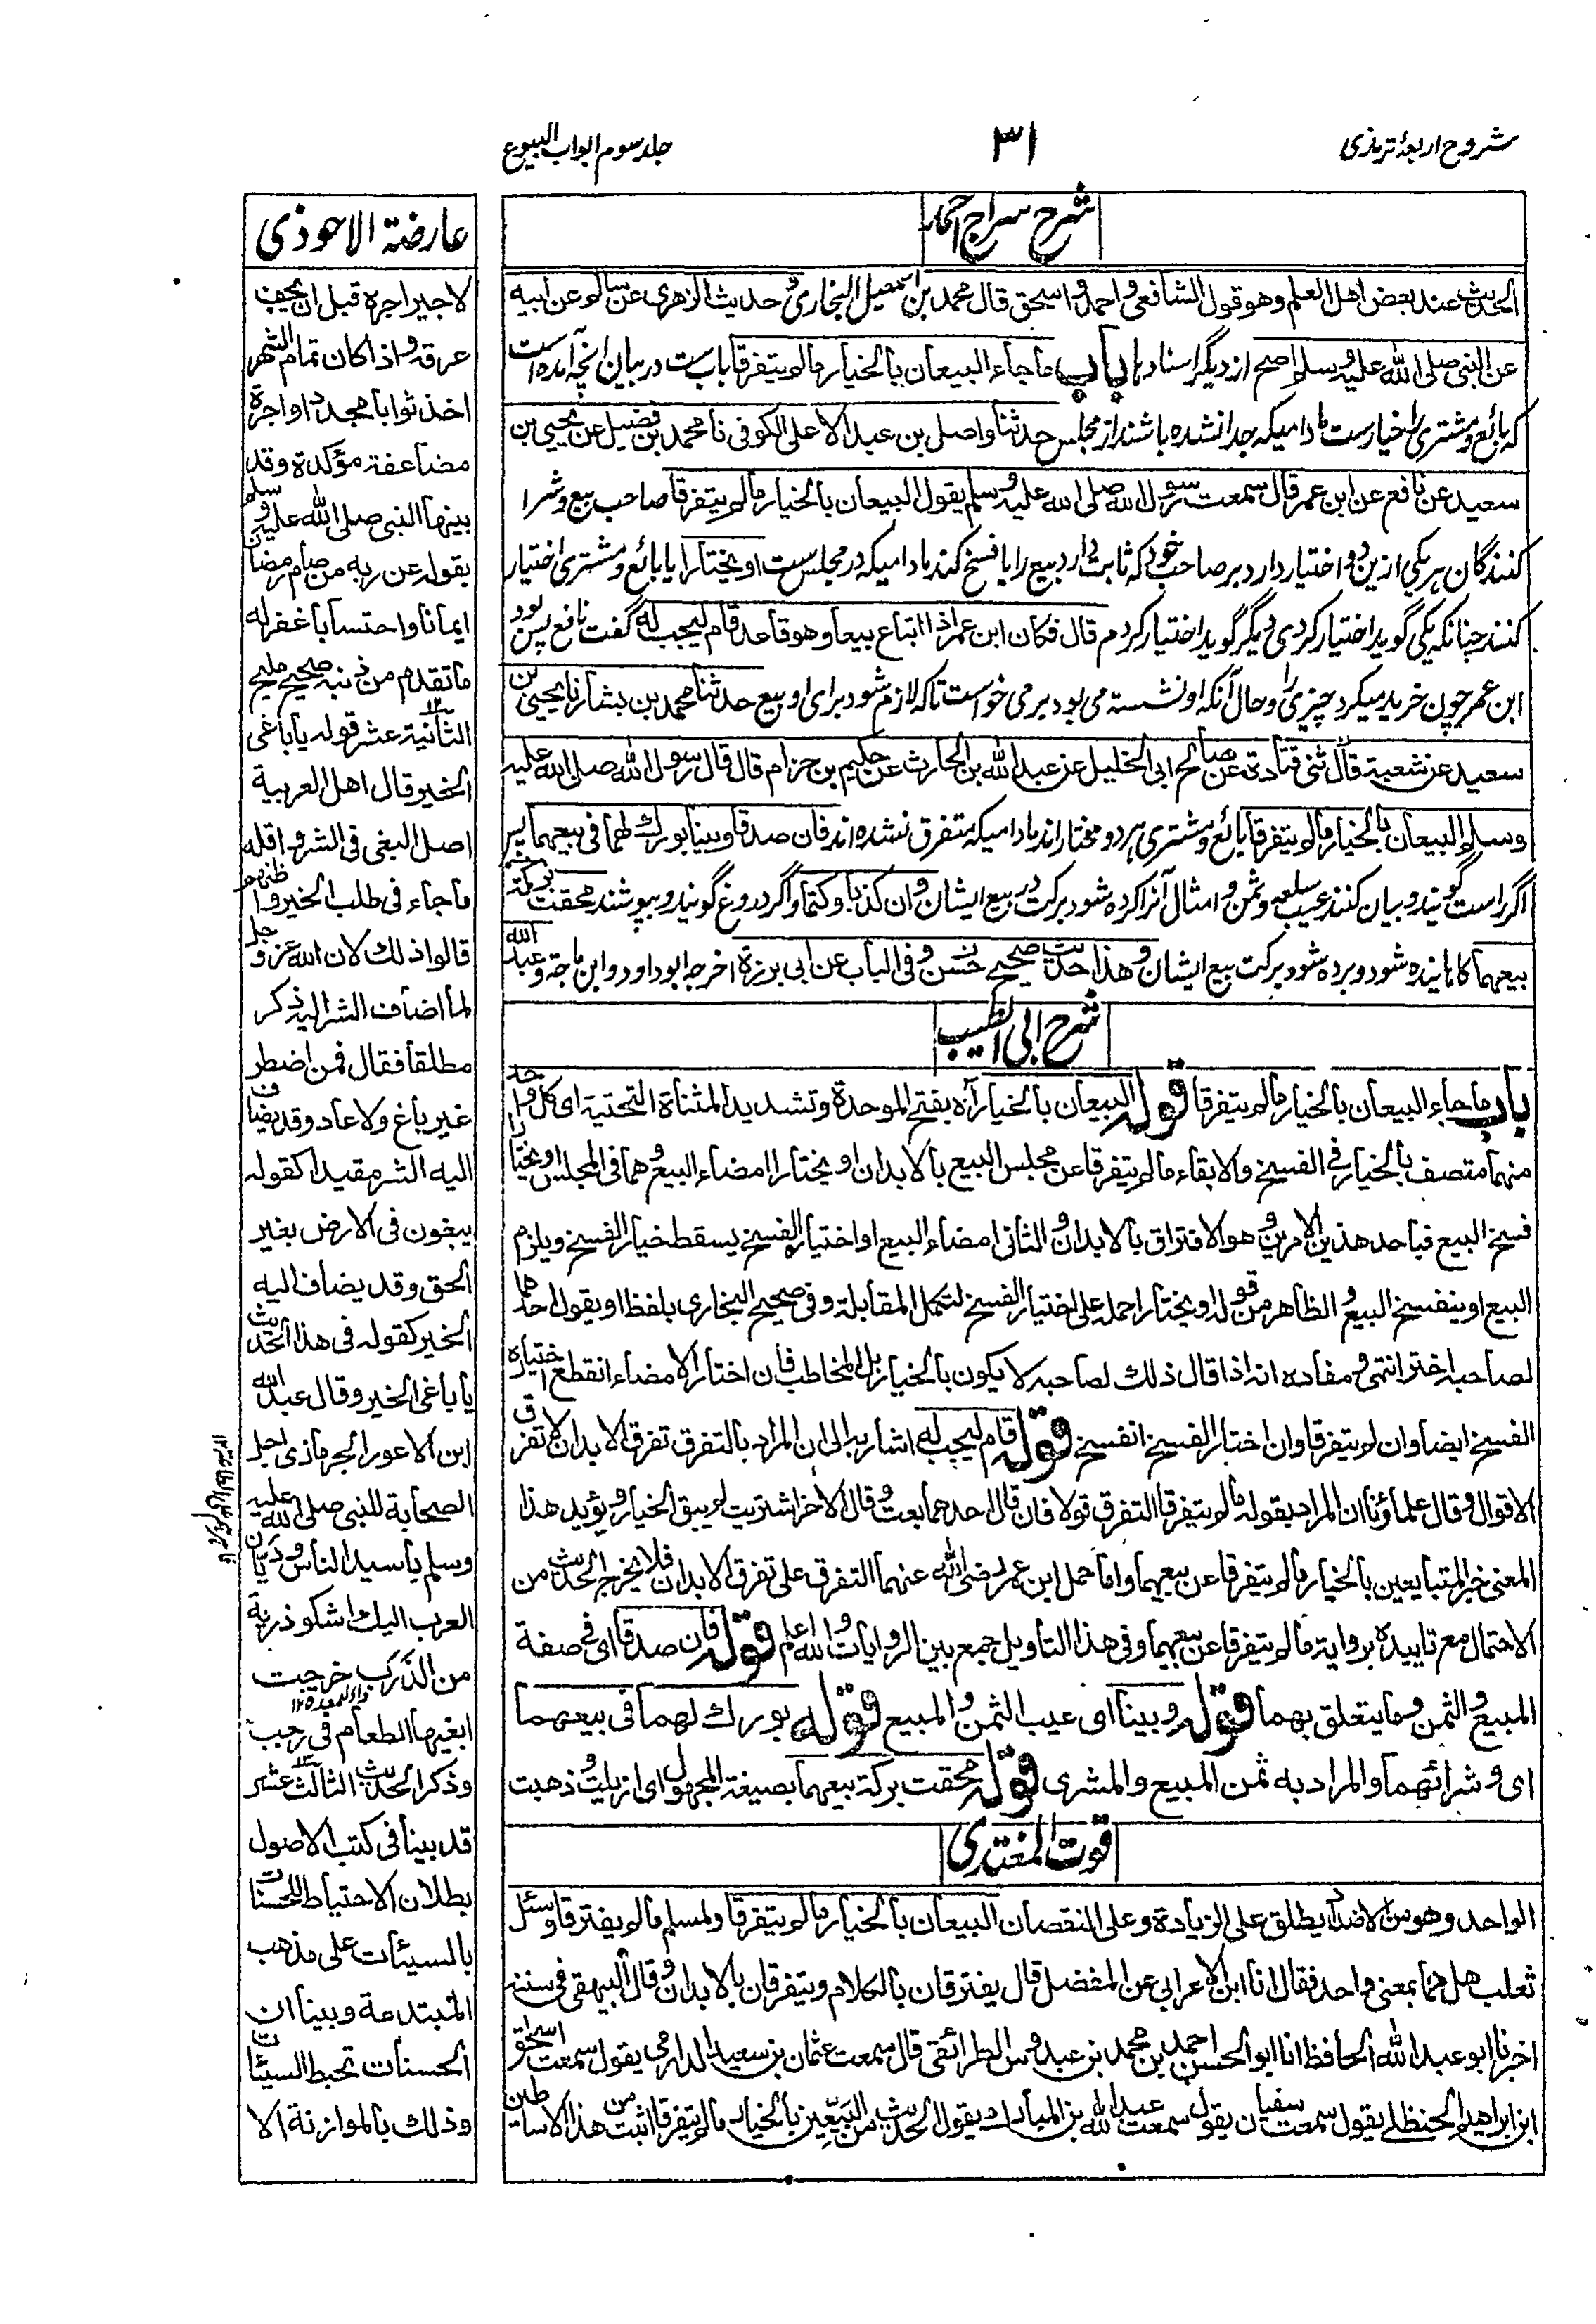 شروح اربعۂ ترمذی
۳۱
جلد سوم ابواب البیوع
شرح سراج احمد
الحدیث عند بعض اهل العلم وهو قول الشافعی واحمد واسحق قال محمد بن اسمعیل البخاری وحدیث الزهری عن سالم عن ابیه
عن النبی صلی الله علیه وسلم اصح از دیگر اسناد ها باب ما جاء البیعان بالخیار مالم یتفرقا باب ست در بیان آنچه آمده است
که بائع ومشتری را خیار ست مادامیکه جدا نشده باشند از مجلس حدثنا واصل بن عبد الاعلی الکوفی نا محمد بن فضیل عن یحیی بن
سعید عن نافع عن ابن عمر قال سمعت رسول الله صلی الله علیه وسلم یقول البیعان بالخیار مالم یتفرقا صاحب بیع وشرا
کنندگان هر یکی ازین دو اختیار دارد بر صاحب خود که ثابت دارد بیع را یا فسخ کند مادامیکه در مجلس ست او یختارا یا بائع ومشتری اختیار
کنند چنانکه یکی گوید اختیار کردی دیگر گوید اختیار کردم قال فکان ابن عمر اذا ابتاع بیعا وهو قاعد قام لیجب له گفت نافع پس بود
ابن عمر چون خرید میکرد چیزی را وحال آنکه او نشسته می بود بر می خواست تا که لازم شود برای او بیع حدثنا محمد بن بشار نا یحیی بن
سعید عن شعبة قال ثنی قتادة عن صالح ابی الخلیل عن عبد الله بن الحارث عن حکیم بن حزام قال قال رسول الله صلی الله علیه
وسلم البیعان بالخیار مالم یتفرقا بائع ومشتری هر دو مختار اند مادامیکه متفرق نشده اند فان صدقا وبینا بورك لهما فی بیعهما پس
اگر راست گویند و بیان کنند عیب سلعه وثمن و امثال آنرا کرده شود برکت در بیع ایشان وان کذبا وکتما و اگر دروغ گویند وبپوشند محقت برکة
بیعهما کاهانیده شود و برده شود برکت بیع ایشان وهذا حدیث صحیح حسن وفی الباب عن ابی برزة اخرجه ابوداود وابن ماجة وعبد الله
شرح ابی الطیب
باب ما جاء البیعان بالخیار مالم یتفرقا قوله البیعان بالخیار آه بفتح الموحدة وتشدید المثناة التحتیة ای کل واحد
منهما متصف بالخیار فی الفسخ والابقاء مالم یتفرقا عن مجلس البیع بالابدان او یختارا امضاء البیع وهما فی المجلس او یختارا
فسخ البیع فباحد هذین الامرین وهو الافتراق بالابدان والثانی امضاء البیع او اختیار الفسخ یسقط خیار الفسخ ویلزم
البیع او ینفسخ البیع والظاهر من قوله او یختارا حمله علی اختیار الفسخ لتکمل المقابلة وفی صحیح البخاری بلفظ او یقول احدهما
لصاحبه اختر انتهی ومفاده انه اذا قال ذلك لصاحبه لا یکون بالخیار بل المخاطب فان اختار الامضاء انقطع اختیاره
الفسخ ایضا وان لم یتفرقا وان اختار الفسخ انفسخ قوله قام لیجب له اشار به الی ان المراد بالتفرق تفرق الابدان لا تفرق
الاقوال وقال علماؤنا ان المراد بقوله مالم یتفرقا التفرق قولا فان قال احدهما بعت وقال الآخر اشتریت لم یبق الخیار ویؤید هذا
المعنی خبر المتبایعین بالخیار مالم یتفرقا عن بیعهما واما حمل ابن عمر رضی الله عنهما التفرق علی تفرق الابدان فلا یخرج الحدیث من
الاحتمال مع تاییده بروایة مالم یتفرقا عن بیعهما وفی هذا التاویل جمع بین الروایات والله اعلم قوله فان صدقا ای فی صفة
المبیع والثمن وما یتعلق بهما قوله وبینا ای عیب الثمن والمبیع قوله بورك لهما فی بیعهما
ای وشرائهما والمراد به ثمن المبیع والمشری قوله محقت برکة بیعهما بصیغة المجهول ای ازیلت وذهبت
قوت المغتذی
الواحد وهو من الاضداد یطلق علی الزیادة وعلی النقصان البیعان بالخیار مالم یتفرقا ولمسلم مالم یفترقا وسئل
ثعلب هل هما بمعنی واحد فقال انا ابن الاعرابی عن المفضل قال یفترقان بالکلام ویتفرقان بالابدان وقال البیهقی فی سننه
اخبرنا ابو عبد الله الحافظ انا ابو الحسن احمد بن محمد بن عبدوس الطرائقی قال سمعت عثمان بن سعید الدارمی یقول سمعت اسحاق
ابن ابراهیم الحنظلی یقول سمعت سفیان یقول سمعت عبد الله بن المبارك یقول الحدیث من البیّعین بالخیار مالم یتفرقا اثبت من هذا الاساطین
عارضة الاحوذی
لاجیر اجرة قبل ان یجف
عرقه واذا کان تمام الشهر
اخذ ثوابا مجددا او اجرة
مضاعفة مؤکدة وقد
بینها النبی صلی الله علیه وسلم
بقوله عن ربه من صام رمضان
ایمانا واحتسابا غفر له
ما تقدم من ذنبه صحیح ملیح
الثانیة عشر قوله یا باغی
الخیر قال اهل العربیة
اصل البغی فی الشر واقله
ما جاء فی طلب الخیر
قالوا ذلك لان الله عز وجل
لما اضاف الشر الیه ذکر
مطلقا فقال فمن اضطر
غیر باغ ولا عاد وقد یضاف
الیه الشر مقیدا کقوله
یبغون فی الارض بغیر
الحق وقد یضاف الیه
الخیر کقوله فی هذا الحدیث
یا باغی الخیر وقال عبد الله
ابن الاعور الجرمازی احد
الصحابة للنبی صلی الله علیه
وسلم یا سید الناس ودیان
العرب الیك اشکو ذربة
من الذرب خرجت
ابغیها الطعام فی رجب
وذکر الحدیث الثالث عشر
قد بینا فی کتب الاصول
بطلان الاحتیاط للحسنات
بالسیئات علی مذهب
المبتدعة وبینا ان
الحسنات تحبط السیئات
وذلك بالموازنة الا